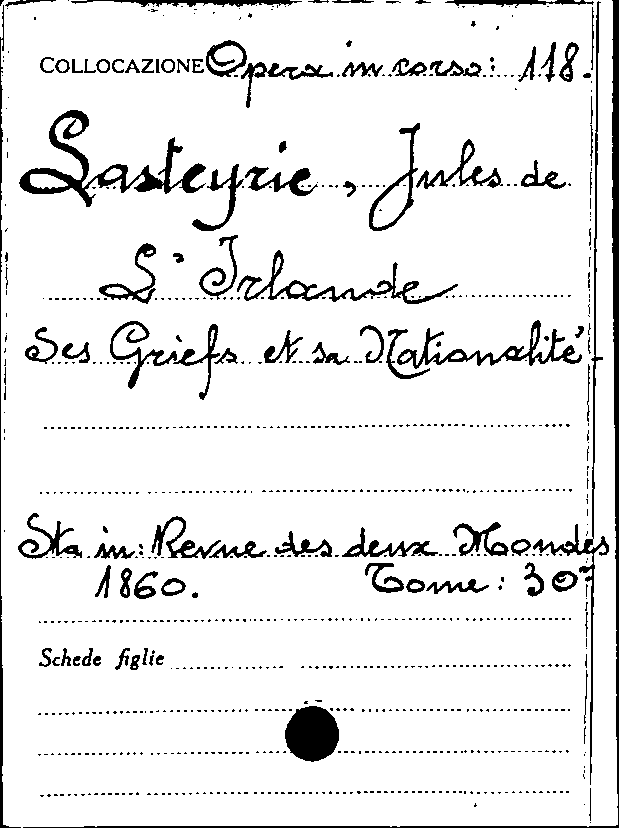 COLLOCAZIONE Opera in corso: 118.
Lasteyrie, Jules de
L'Irlande
Ses Griefs et sa Nationalité -
Sta in: Revue des deux Mondes
1860. Tome: 30º
Schede figlie